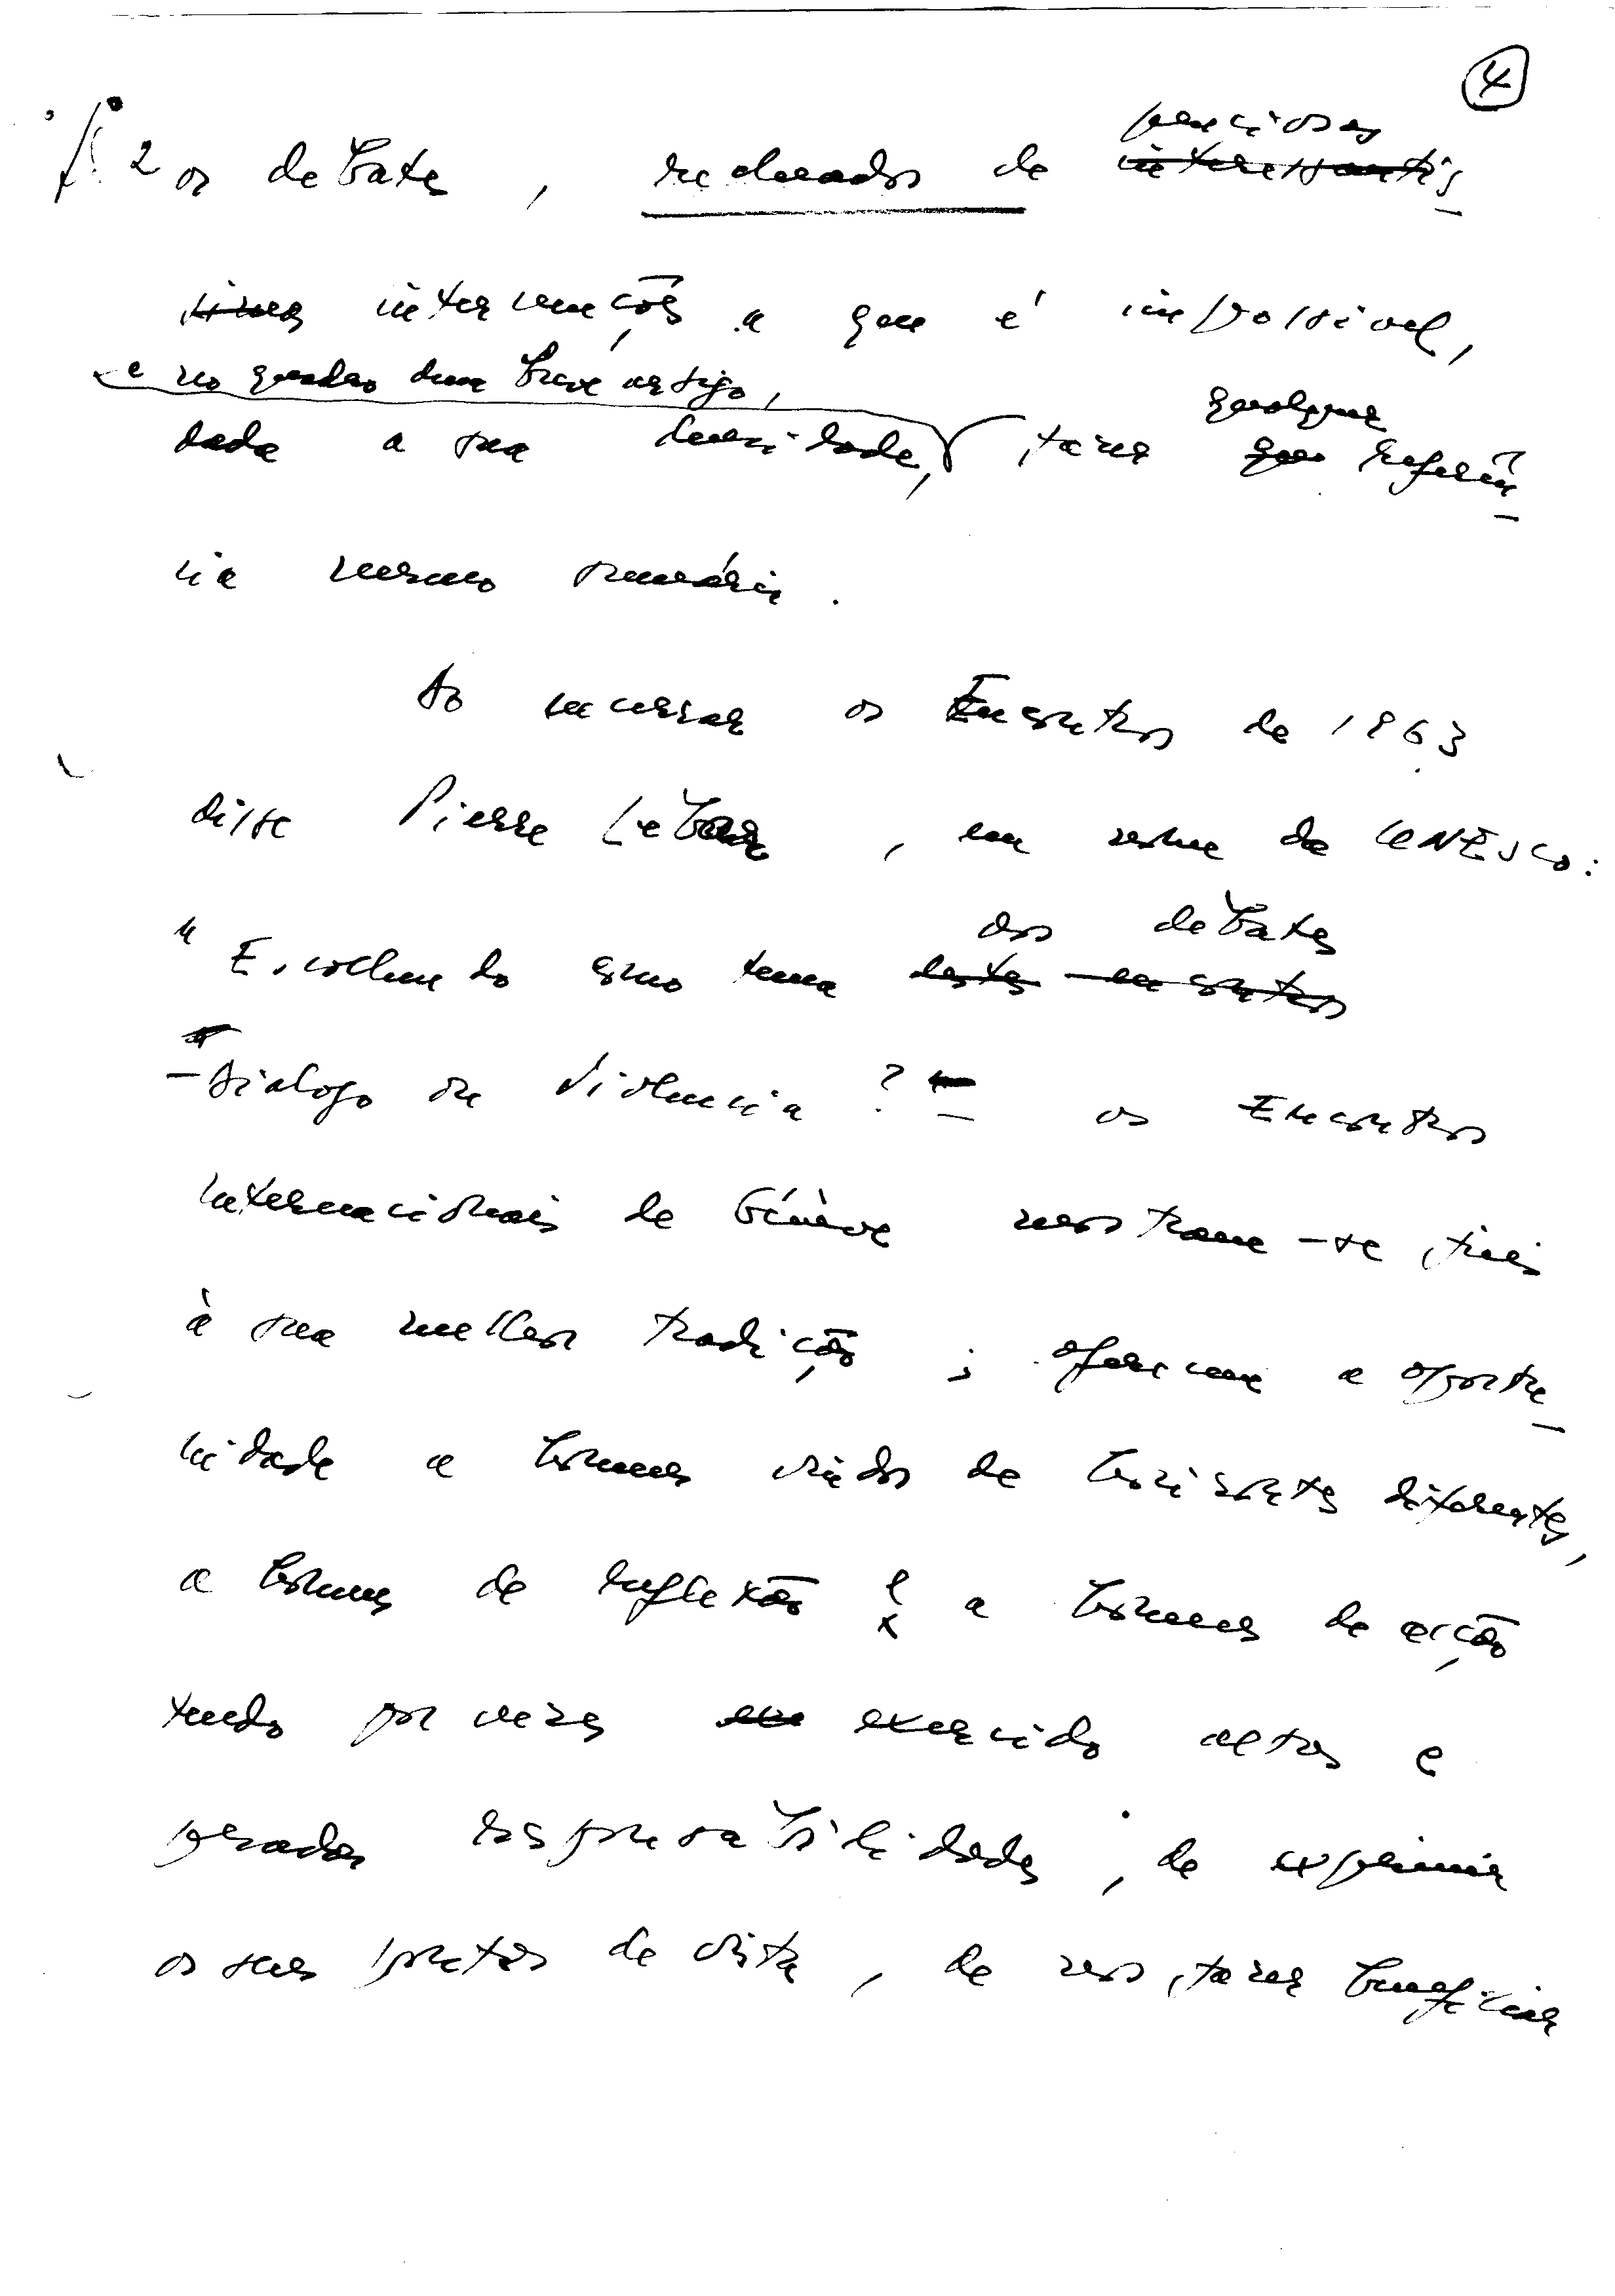 4
2 os debates, recheados de preciosas interessantís-
simas intervenções a que é impossível,
e no quadro dum breve artigo,
dada a sua densidade, fazer qualquer referên-
cia mesmo sumária.
Ao encerrar os Encontros de 1963
disse Pierre Lebar, em nome da UNESCO:
"Escolhendo como tema dos debates
destes encontros
- Dialogo ou Violencia? - os Encontros
Internacionais de Génève mostram-se fiéis
à sua melhor tradição; oferecem a oportu-
nidade a homens vindos de horizontes diferentes,
a homens de reflexão e a homens de acção
tendo por vezes exercido altas e
pesadas responsabilidades, de exprimir
os seus pontos de vista, de nos fazer beneficiar